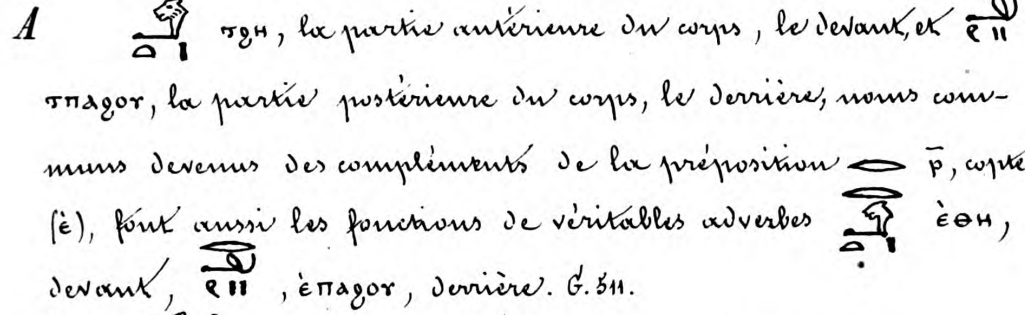 A 𓄂𓏏𓏤 ⲧϩⲏ, la partie antérieure du corps, le devant, et
ⲧⲡⲁϩⲟⲩ, la partie postérieure du corps, le derrière, noms com-
muns devenus des compléments de la préposition 𓂋 ⲣ̄, copte
(ⲉ̀), font aussi les fonctions de véritables adverbes 𓂋𓄂𓏏𓏤 ⲉ̀ⲑⲏ,
devant, , ⲉ̀ⲡⲁϩⲟⲩ, derrière. G. 511.